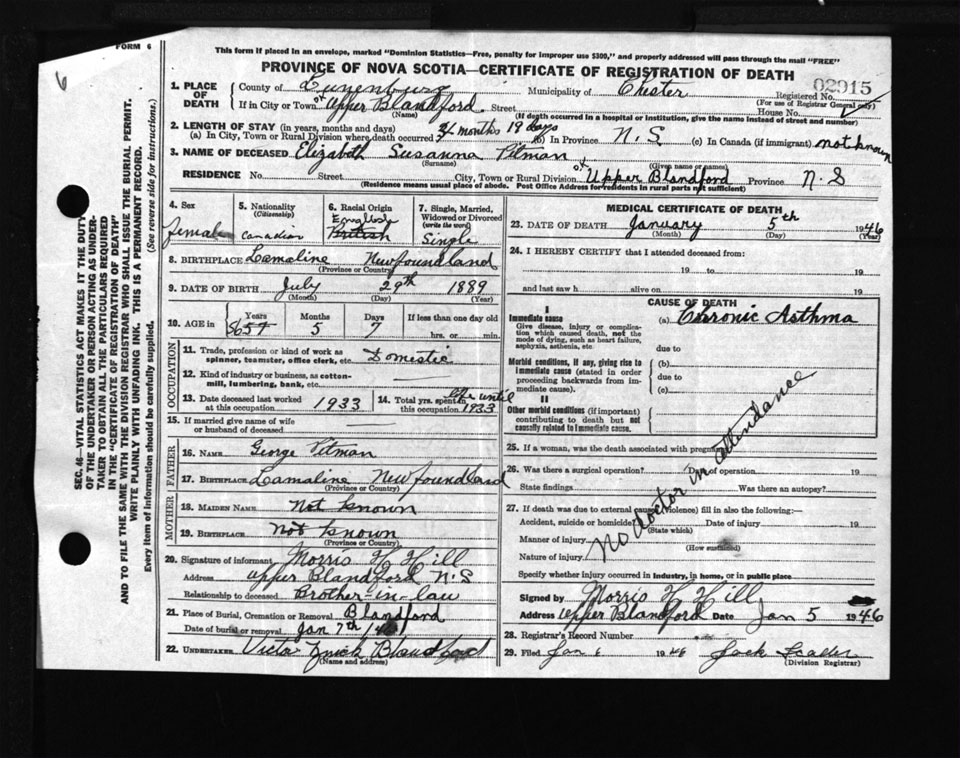 FORM 6
6
This form if placed in an envelope, marked "Dominion Statistics—Free, penalty for improper use $300," and properly addressed will pass through the mail "FREE"
PROVINCE OF NOVA SCOTIA—CERTIFICATE OF REGISTRATION OF DEATH
02915
SEC. 46—VITAL STATISTICS ACT MAKES IT THE DUTY
OF THE UNDERTAKER OR PERSON ACTING AS UNDER-
TAKER TO OBTAIN ALL THE PARTICULARS REQUIRED
IN THE "CERTIFICATE OF REGISTRATION OF DEATH"
AND TO FILE THE SAME WITH THE DIVISION REGISTRAR WHO SHALL ISSUE THE BURIAL PERMIT.
WRITE PLAINLY WITH UNFADING INK. THIS IS A PERMANENT RECORD.
Every item of information should be carefully supplied. (See reverse side for instructions.)
1. PLACE OF DEATH County of Lunenburg Municipality of Chester Registered No.
(For use of Registrar General only)
If in City or Town or Upper Blandford Street House No.
(Name) (If death occurred in a hospital or institution, give the name instead of street and number)
2. LENGTH OF STAY (in years, months and days)
(a) In City, Town or Rural Division where death occurred months 19 days (b) In Province N.S (c) In Canada (if immigrant) not known
3. NAME OF DECEASED Elizabeth Susanna Pitman
(Surname) (Given name or names)
RESIDENCE No. Street City, Town or Rural Division of Upper Blandford Province N.S
(Residence means usual place of abode. Post Office Address for residents in rural parts not sufficient)
4. Sex female
5. Nationality (Citizenship) Canadian
6. Racial Origin English British
7. Single, Married, Widowed or Divorced (write the word) Single
8. BIRTHPLACE Lamaline Newfoundland
(Province or Country)
9. DATE OF BIRTH July 29th 1889
(Month) (Day) (Year)
10. AGE in Years Months 5 Days 7 If less than one day old hrs. or min.
OCCUPATION
11. Trade, profession or kind of work as spinner, teamster, office clerk, etc. Domestic
12. Kind of industry or business, as cotton-mill, lumbering, bank, etc.
13. Date deceased last worked at this occupation 1933
14. Total yrs. spent in this occupation life until 1933
15. If married give name of wife or husband of deceased
FATHER
16. NAME George Pitman
17. BIRTHPLACE Lamaline Newfoundland
(Province or Country)
MOTHER
18. MAIDEN NAME Not Known
19. BIRTHPLACE Not Known
(Province or Country)
20. Signature of informant Morris H Hill
Address Upper Blandford N.S
Relationship to deceased Brother-in-law
21. Place of Burial, Cremation or Removal Blandford
Date of burial or removal Jan 7th /46
22. UNDERTAKER Victor Zinck Blandford
(Name and address)
MEDICAL CERTIFICATE OF DEATH
23. DATE OF DEATH January 5th 1946
(Month) (Day) (Year)
24. I HEREBY CERTIFY that I attended deceased from:
19 to 19
and last saw h alive on 19
CAUSE OF DEATH
I
Immediate cause
Give disease, injury or complication which caused death, not the mode of dying, such as heart failure, asphyxia, asthenia, etc.
(a) Chronic Asthma
due to
Morbid conditions, if any, giving rise to immediate cause (stated in order proceeding backwards from immediate cause).
(b)
due to
(c)
II
Other morbid conditions (if important) contributing to death but not causally related to immediate cause.
No doctor in attendance
25. If a woman, was the death associated with pregnancy?
26. Was there a surgical operation? Date of operation 19
State findings Was there an autopsy?
27. If death was due to external causes (violence) fill in also the following:—
Accident, suicide or homicide? Date of injury 19
(State which)
Manner of injury
(How sustained)
Nature of injury
Specify whether injury occurred in industry, in home, or in public place
Signed by Morris H Hill
Address Upper Blandford Date Jan 5 1946
28. Registrar's Record Number
29. Filed Jan 6 1946 Jack
(Division Registrar)